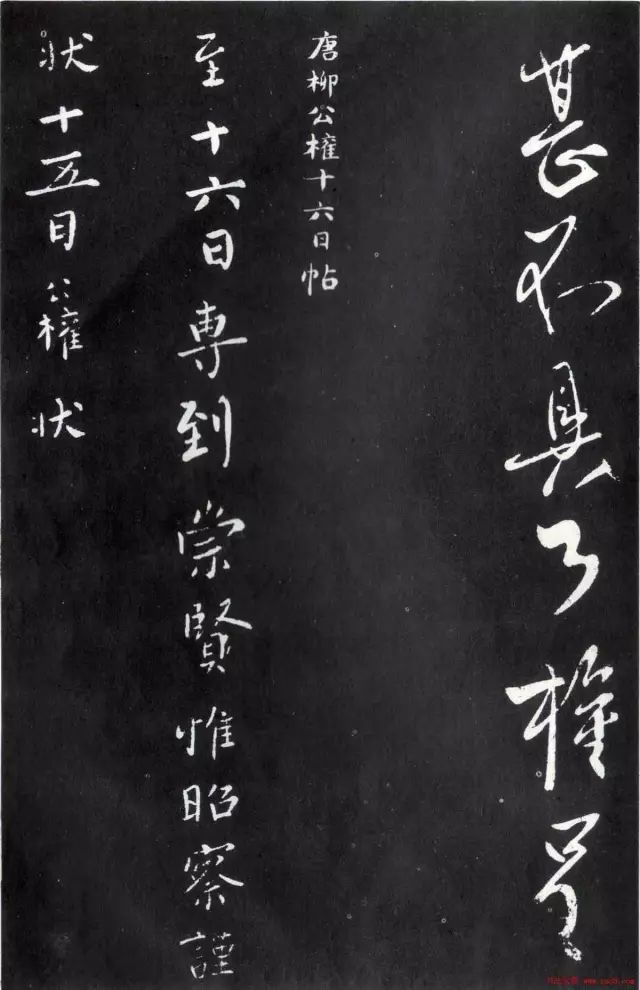 甚不具公權呈
唐柳公權十六日帖
至十六日専到崇賢惟昭察謹
狀十五日公權狀